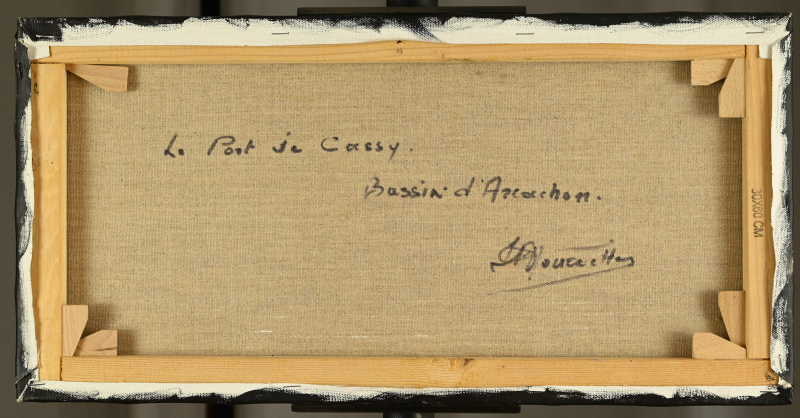 Le Port de Cassy.
Bassin d'Arcachon.
30X60 CM